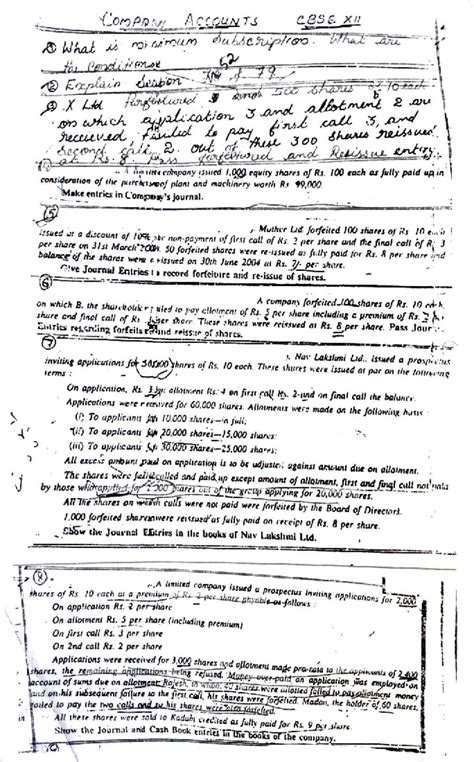 COMPANY ACCOUNTS CBSE XII
① What is minimum Subscription. What are
the Conditions
② Explain Session 62 of 79
③ X Ltd forfeitured 500 shares of 10 each
on which application 3 and allotment 2 are
received. Failed to pay first call 3, and
Second call 2. out of these 300 shares reissued
at Rs. 8. Pass forfeitured and Reissue entry.
A limited company issued 1,000 equity shares of Rs. 100 each as fully paid up in
consideration of the purchase of plant and machinery worth Rs 99,000.
Make entries in Company's journal.
⑤
Muthur Ltd. forfeited 100 shares of Rs 10 each
issued at a discount of 10% for non-payment of first call of Rs. 2 per share and the final call of Rs 3
per share on 31st March 50 forfeited shares were re-issued as fully paid for Rs. 8 per share and
balance of the shares were re-issued on 30th June 2004 at Rs. 7/- per share.
Give Journal Entries to record forfeiture and re-issue of shares.
⑥
A company forfeited 100 shares of Rs. 10 each,
on which B, the shareholder failed to pay allotment of Rs. 5 per share including a premium of Rs. 2
share and final call of Rs. per share. These shares were reissued at Rs. 8 per share. Pass Journal
Entries regarding forfeiture and reissue of shares.
⑦
Nav Lakshmi Ltd., issued a prospectus
inviting applications for shares of Rs. 10 each. These shares were issued at par on the following
terms :
On application, Rs. 3 allotment Rs. 4 on first call Rs. 2 and on final call the balance.
Applications were received for 60,000 shares. Allotments were made on the following basis :
(i) To applicants for 10,000 shares—in full;
(ii) To applicants for 20,000 shares—15,000 shares;
(iii) To applicants for 30,000 shares—25,000 shares;
All excess amount paid on application is to be adjusted against amount due on allotment.
The shares were fully called and paid up except amount of allotment, first and final call not paid
by those who applied for 2,000 shares out of the group applying for 20,000 shares.
All the shares on which calls were not paid were forfeited by the Board of Directors.
1,000 forfeited shares were reissued as fully paid on receipt of Rs. 8 per share.
Show the Journal Entries in the books of Nav Lakshmi Ltd.
⑧
A limited company issued a prospectus inviting applications for 2,000
shares of Rs. 10 each at a premium of Rs. 2 per share payable as follows :
On application Rs. 2 per share
On allotment Rs. 5 per share (including premium)
On first call Rs. 3 per share
On 2nd call Rs. 2 per share
Applications were received for 3,000 shares and allotment made pro-rata to the applicants of 2,400
shares, the remaining applications being refused. Money over-paid on application was employed on
account of sums due on allotment. Rajesh, to whom 40 shares were allotted failed to pay allotment money
and on his subsequent failure to the first call, his shares were forfeited. Madan, the holder of 60 shares,
failed to pay the two calls and so his shares were also forfeited.
All these shares were sold to Kadam credited as fully paid for Rs. 9 per share.
Show the Journal and Cash Book entries in the books of the company.